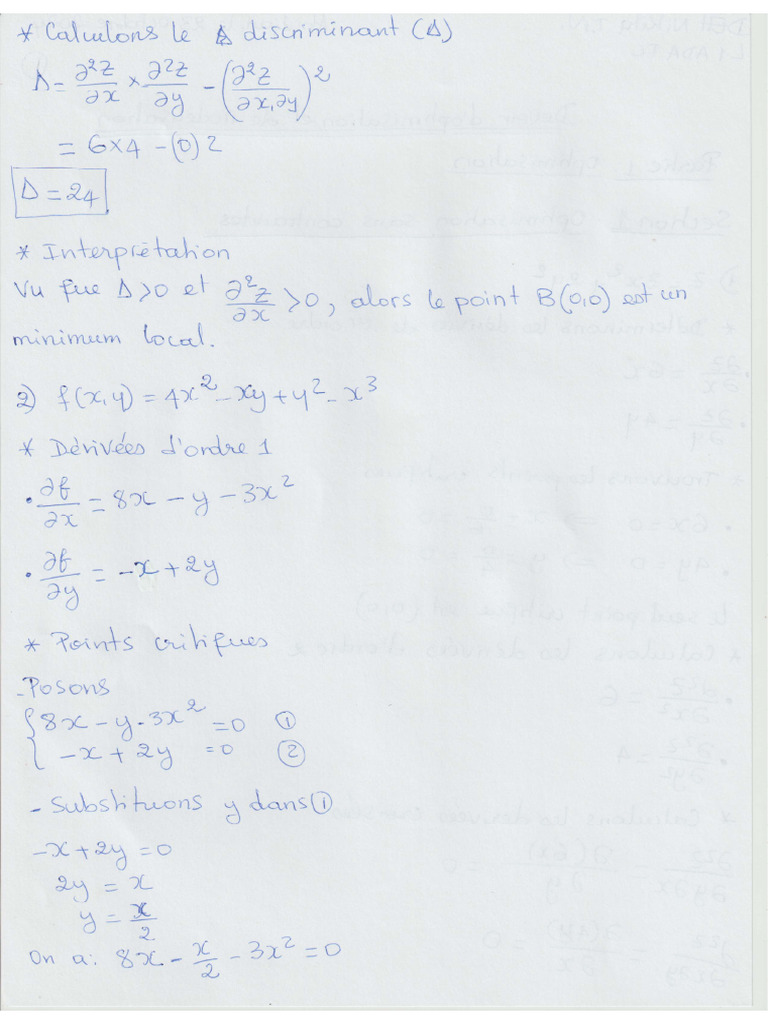 * Calculons le Δ discriminant (Δ)
Δ = ∂²z/∂x × ∂²z/∂y - (∂²z/∂x,∂y)²
= 6×4 - (0)2
Δ = 24
* Interprétation
Vu que Δ>0 et ∂²z/∂x >0, alors le point B(0,0) est un
minimum local.
2) f(x,y) = 4x² - xy + y² - x³
* Dérivées d'ordre 1
• ∂f/∂x = 8x - y - 3x²
• ∂f/∂y = -x + 2y
* Points critiques
- Posons
{ 8x - y - 3x² = 0 ①
-x + 2y = 0 ②
- Substituons y dans ①
-x + 2y = 0
2y = x
y = x/2
On a: 8x - x/2 - 3x² = 0